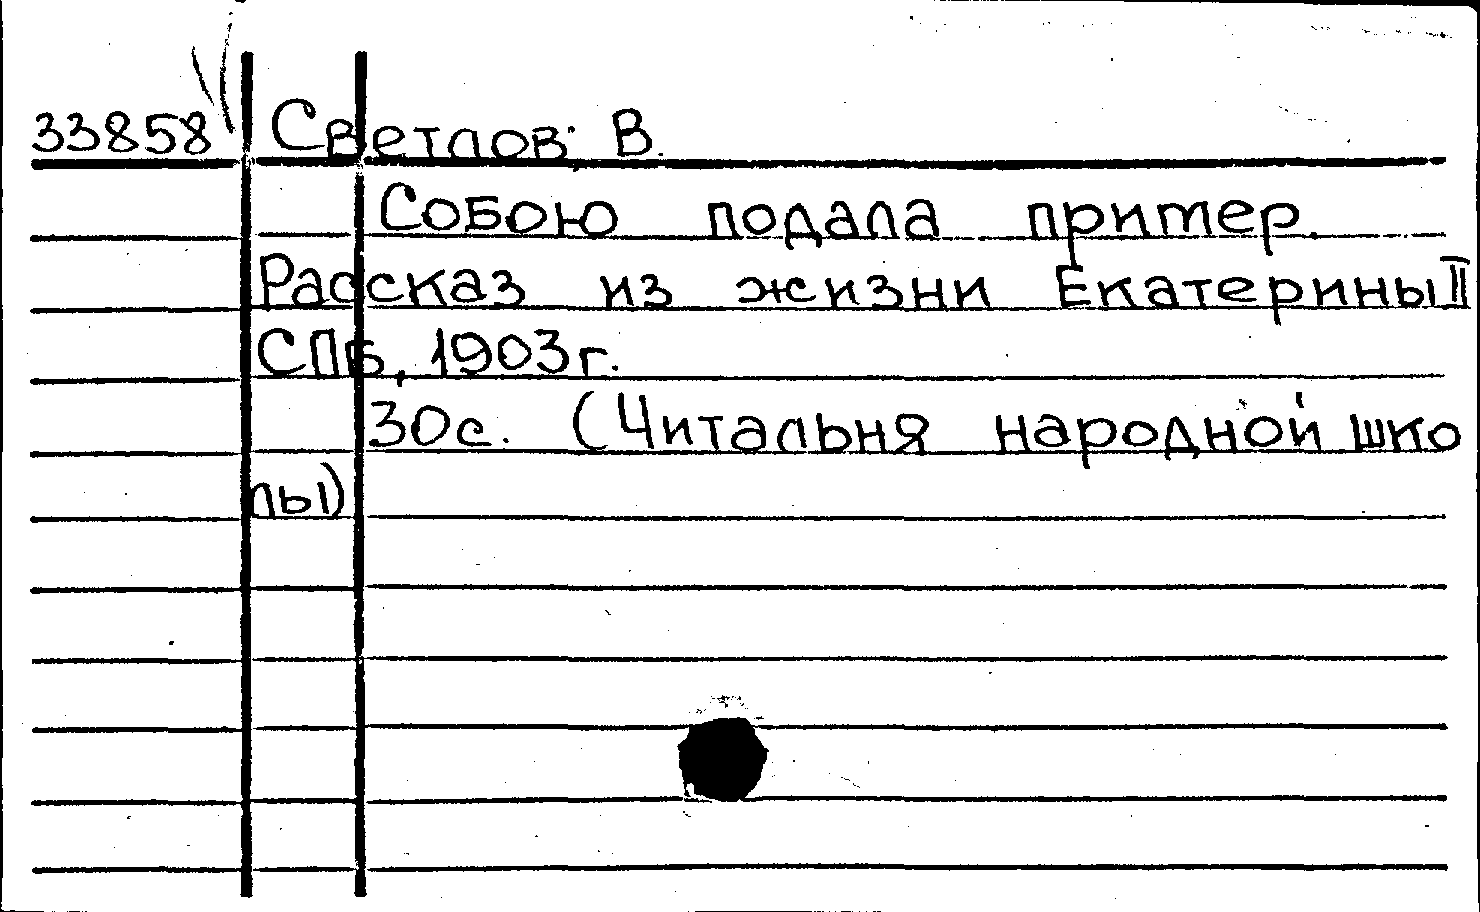 33858 Светлов, В.
Собою подала пример.
Рассказ из жизни Екатерины II
СПб, 1903г.
30с. (Читальня народной шко
лы)